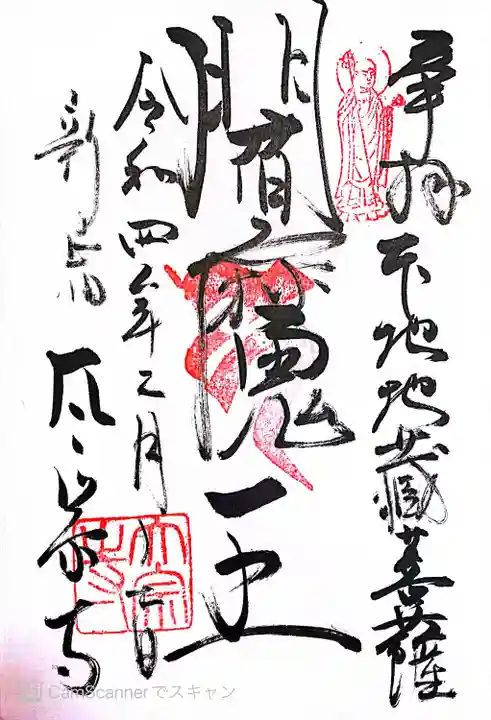 奉拝 本地地蔵菩薩
閻魔大王
令和四年二月 日
新宿 太宗寺
CamScannerでスキャン